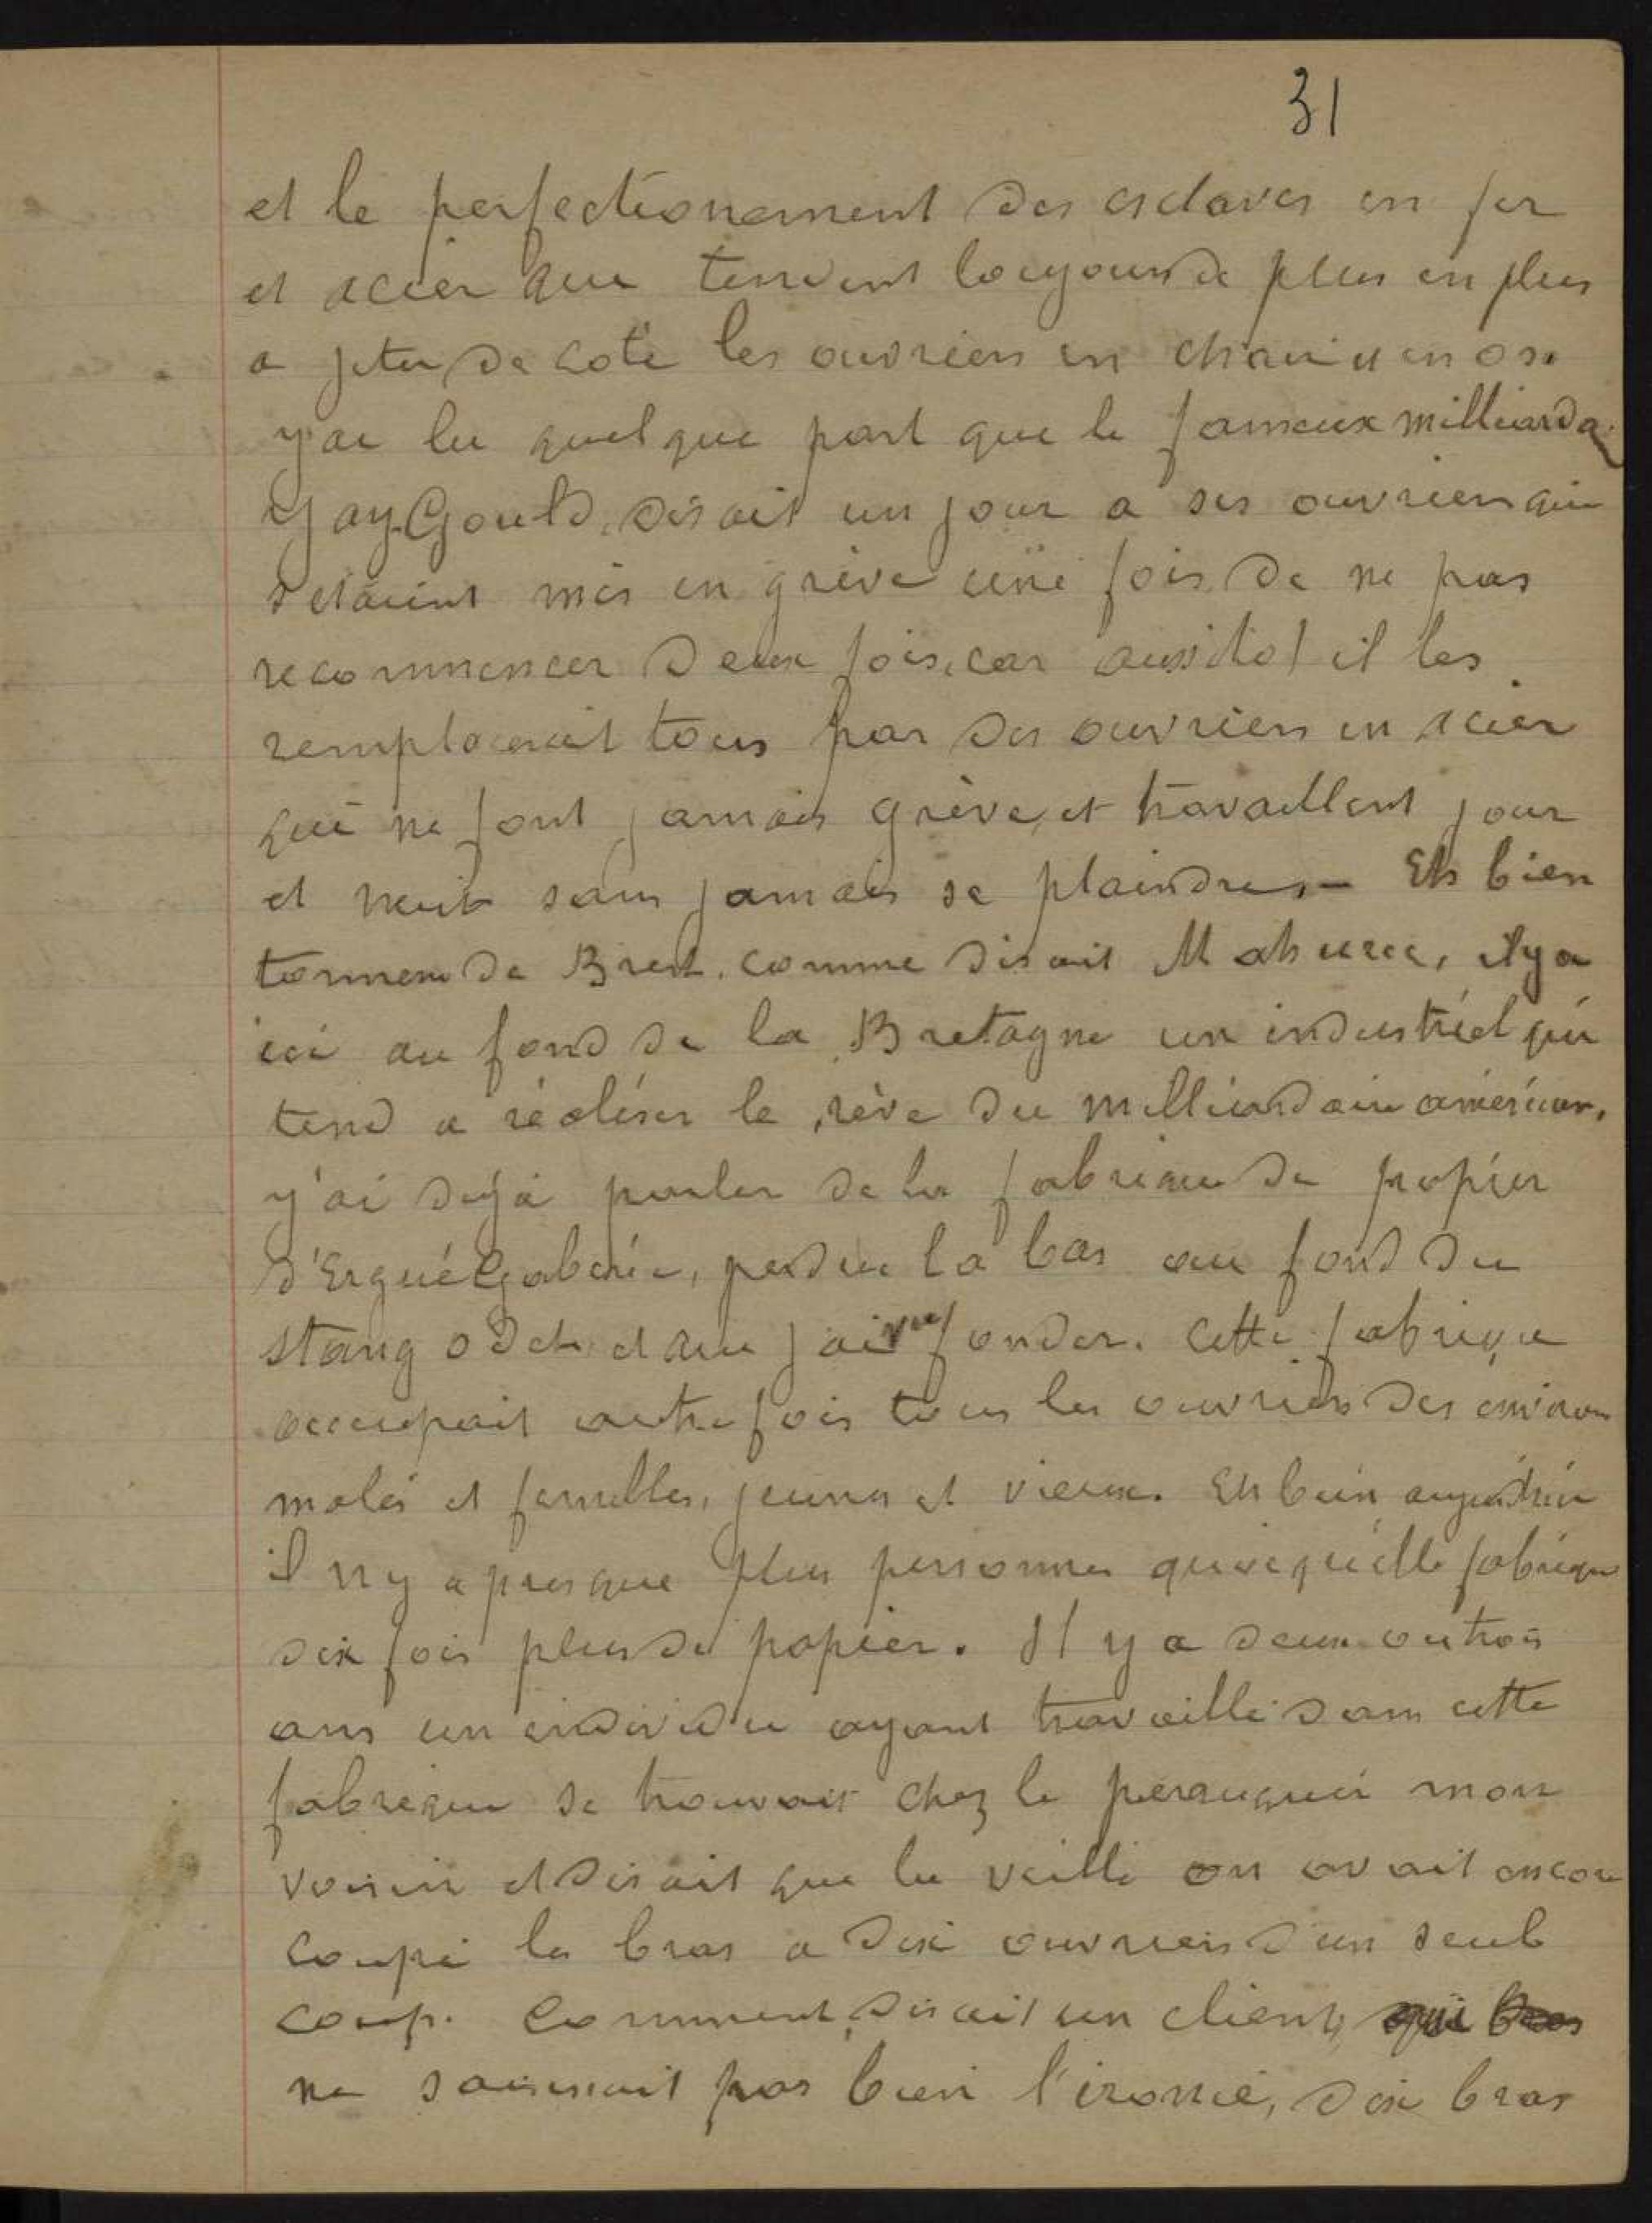 31
et le perfectionement des esclaves en fer
et acier que tendent toujours de plus en plus
a jeter de coté les ouvriers en chair et en os.
y'ai lu quelque part que le fameux milliarda
Yay-Gould, disait un jour a ses ouvriers qui
s'etaient mis en grève une fois de ne pas
recommencer deux fois, car aussitot il les
remplacerait tous par des ouvriers en acier
qui ne font jamais grève, et travaillent jour
et nuit sans jamais se plaindre. - Eh bien
tonnerre de Brest, comme disait Mahurec, il y a
ici au fond de la Bretagne un industriel qui
tend a réaliser le rève du milliardaire américain.
y'ai deja parler de la fabrique de papier
d'Ergué Gaberic, perdue la bas au fond du
stang odet et que j'ai vu fonder. Cette fabrique
occupait autre fois tous les ouvriers des environs
males et femelles, jeunes et vieux. Eh bien aujourd'hui
il n'y a presque plus personnes quoiqu'elle fabrique
dix fois plus de papier. Il y a deux ou trois
ans un individu ayant travaillé dans cette
fabrique se trouvait chez le perruquier mon
voisin et disait que la veille on avait encore
coupé les bras a dix ouvriers d'un seul
coup. Comment, disait un client, qui
ne saisissait pas bien l'ironie, dix bras